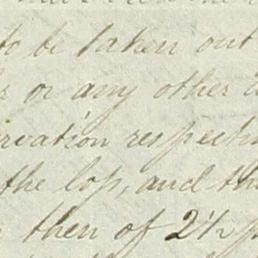 to be taken out
or any other
respecti
the lop, and th
then of 2½